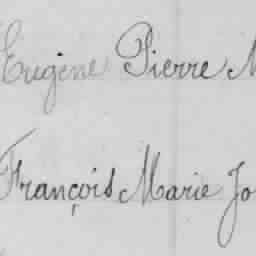 Eugène Pierre M
François Marie Jo